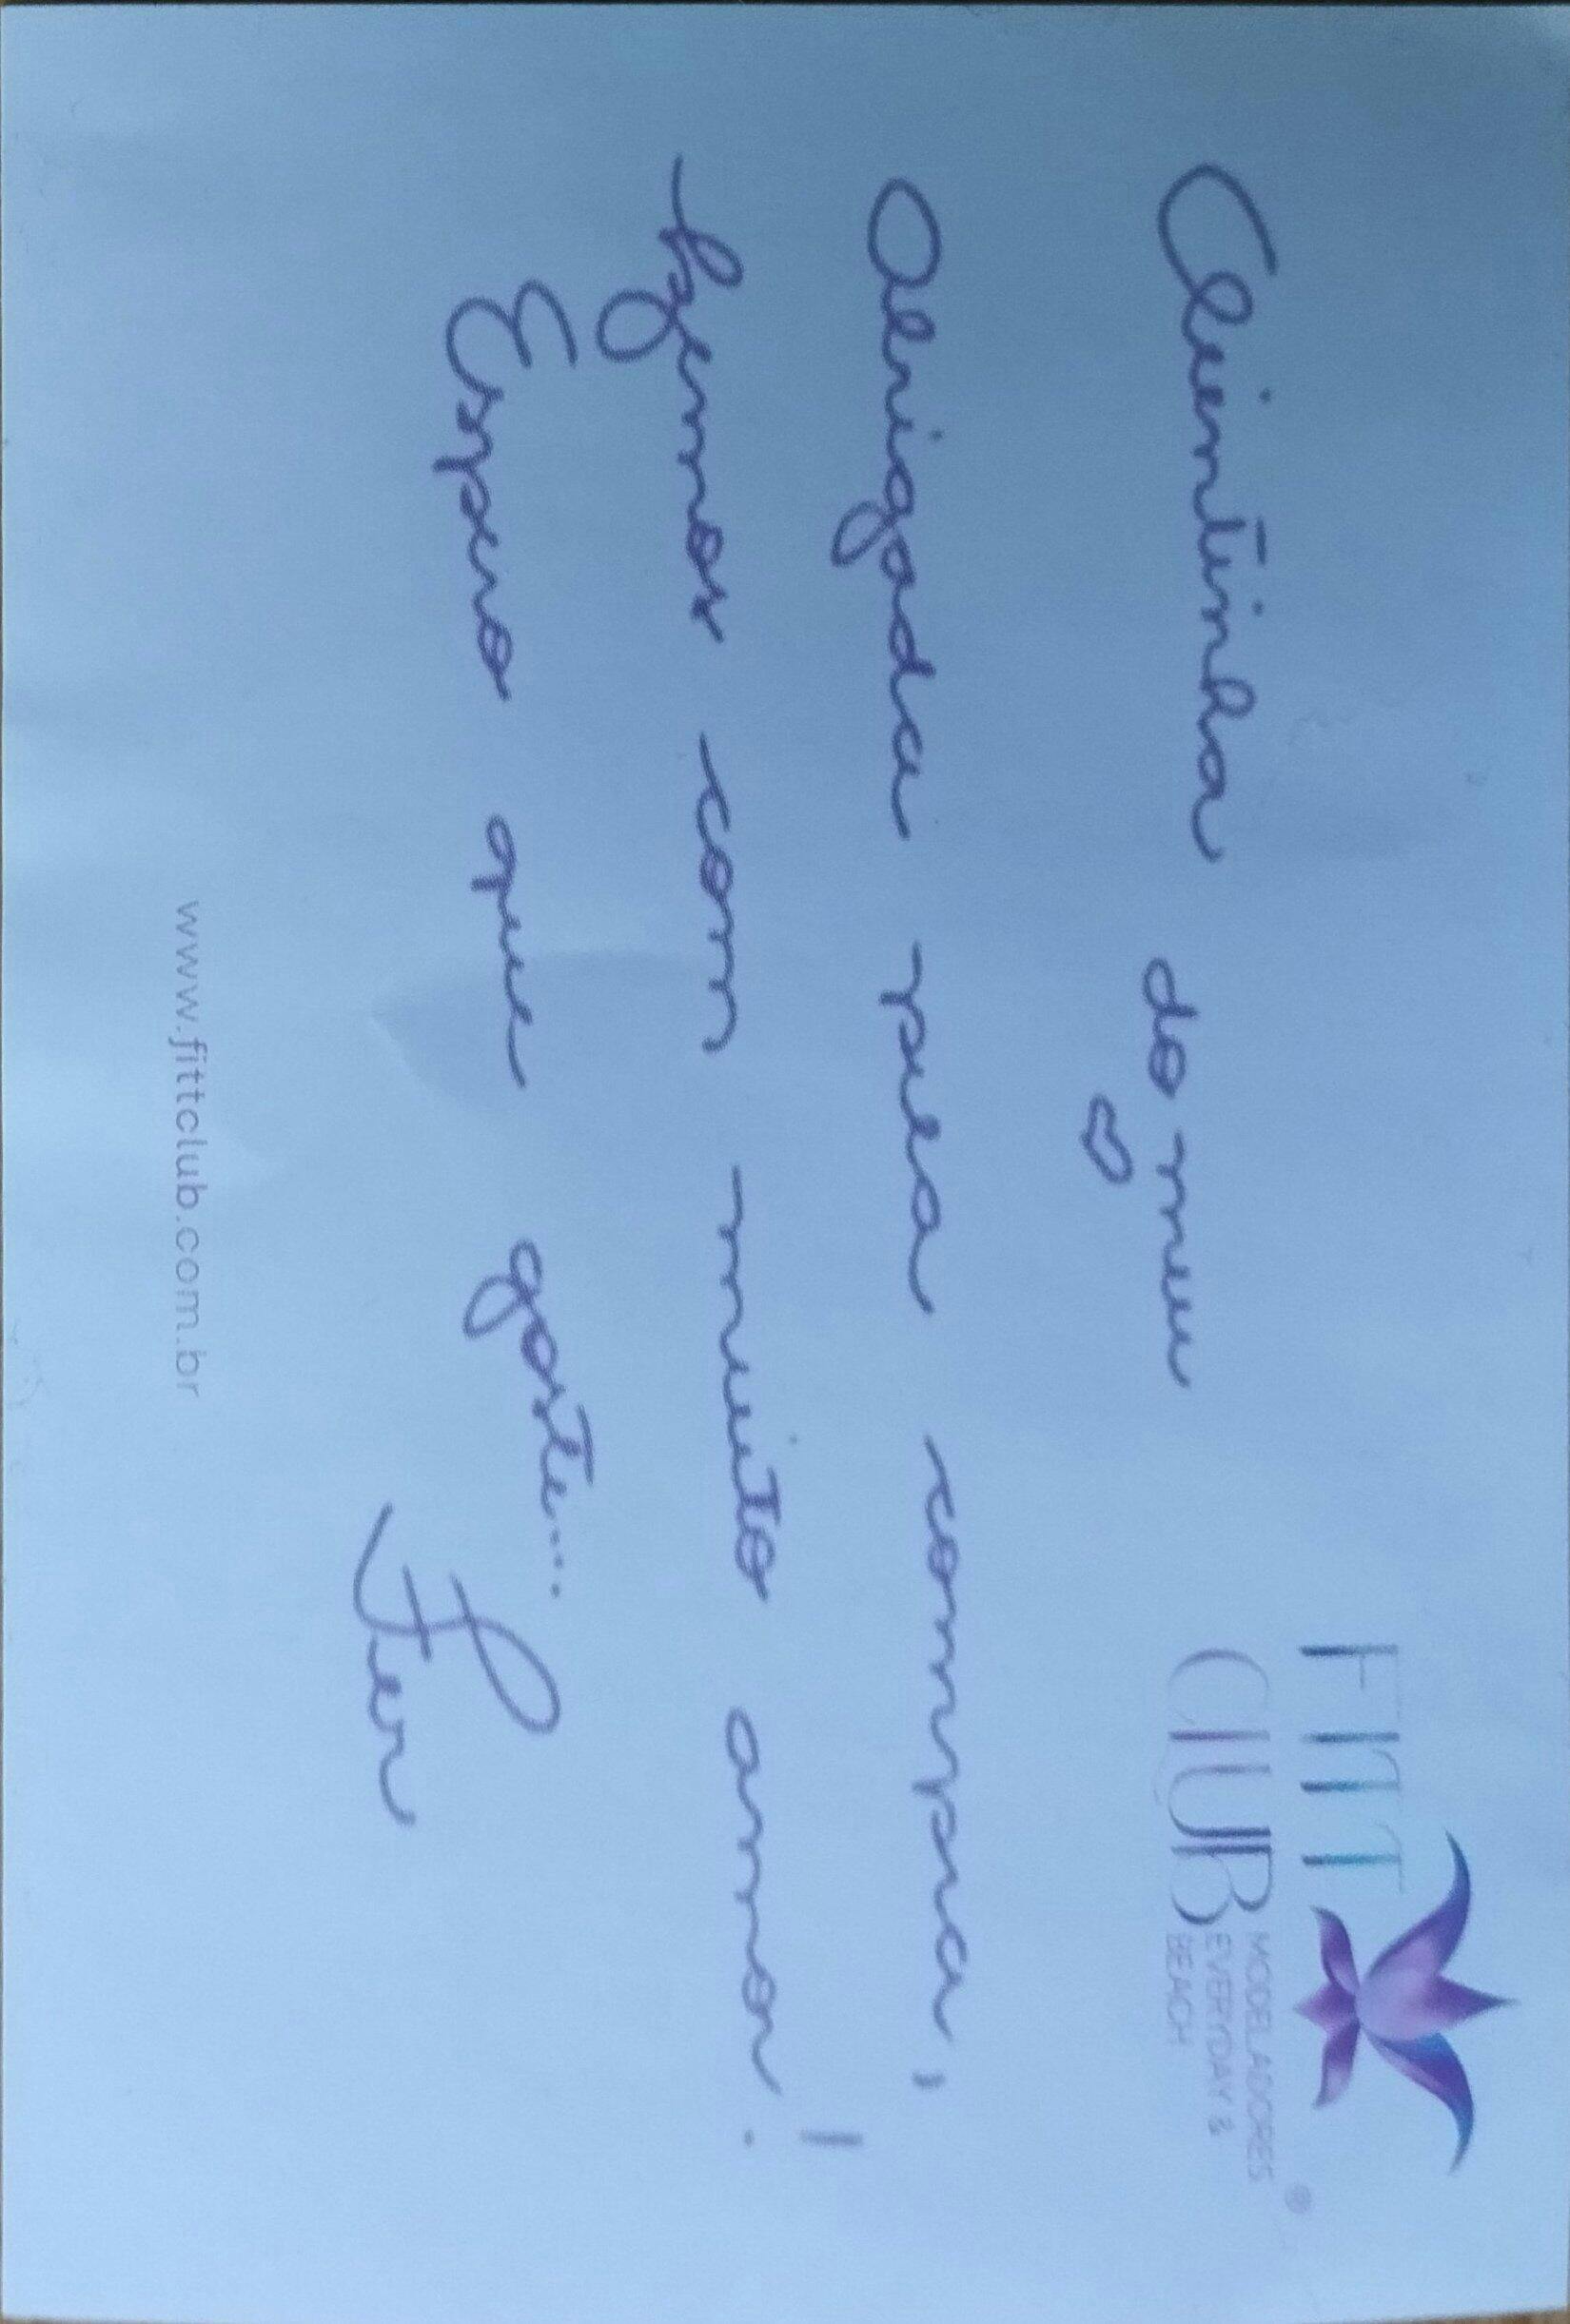 FITT
CLUB
MODELADORES
EVERYDAY &
BEACH
®
Clientinha do meu
Obrigada pela compra,
fizemos com muito amor!
Espero que goste...
Fer
www.fittclub.com.br